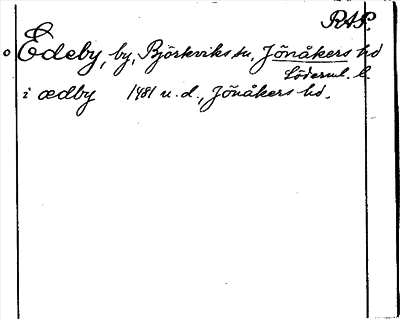 RAP.
Edeby, by, Björkviks sn, Jönåkers hd
Söderml. l.
i ædby 1481 u. d., Jönåkers hd.